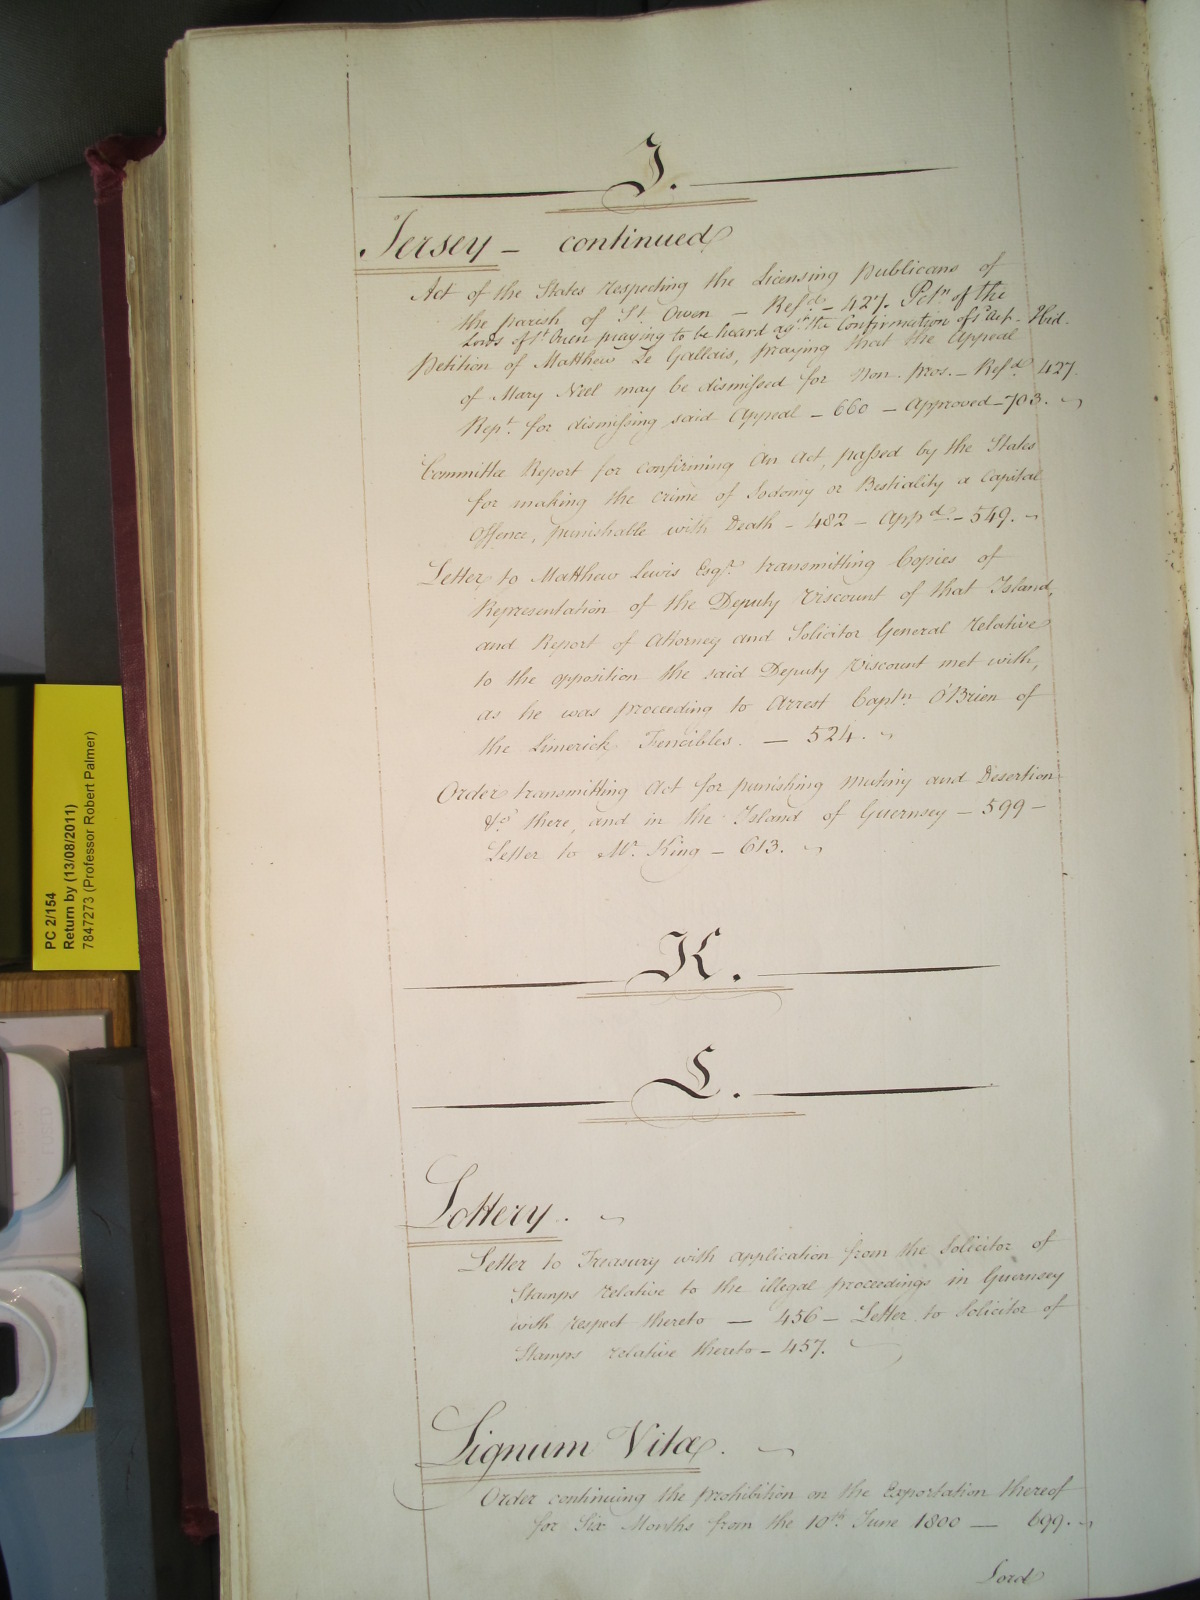 J.
Jersey – continued
Act of the States respecting the Licensing Publicans of
the parish of St. Owen – Refd. – 427. Petn. of the
Lords of St. Owen praying to be heard agt. the Confirmation of sd. Act – Ibid.
Petition of Matthew Le Gallais, praying that the Appeal
of Mary Neel may be dismissed for Non. pros. – Refd. 427.
Rept. for dismissing said Appeal – 660 – Approved – 703.
Committee Report for confirming An Act, passed by the States
for making the crime of Sodomy or Bestiality a Capital
Offence, punishable with Death – 482 – Appd. – 549.
Letter to Matthew Lewis Esqr. transmitting Copies of
Representation of the Deputy Viscount of that Island,
and Report of Attorney and Solicitor General relative
to the opposition the said Deputy Viscount met with,
as he was proceeding to Arrest Captn. O'Brien of
the Limerick Fencibles. – 524.
Order transmitting Act for punishing Mutiny and Desertion
&c. there, and in the Island of Guernsey – 599 –
Letter to Mr. King – 613.
K.
L.
Lottery.
Letter to Treasury with application from the Solicitor of
Stamps relative to the illegal proceedings in Guernsey
with respect thereto – 456 – Letter to Solicitor of
Stamps relative thereto – 457.
Lignum Vitæ.
Order continuing the prohibition on the Exportation thereof
for Six Months from the 10th. June 1800 – 699.
Lord
PC 2/154
Return by (13/08/2011)
7847273 (Professor Robert Palmer)